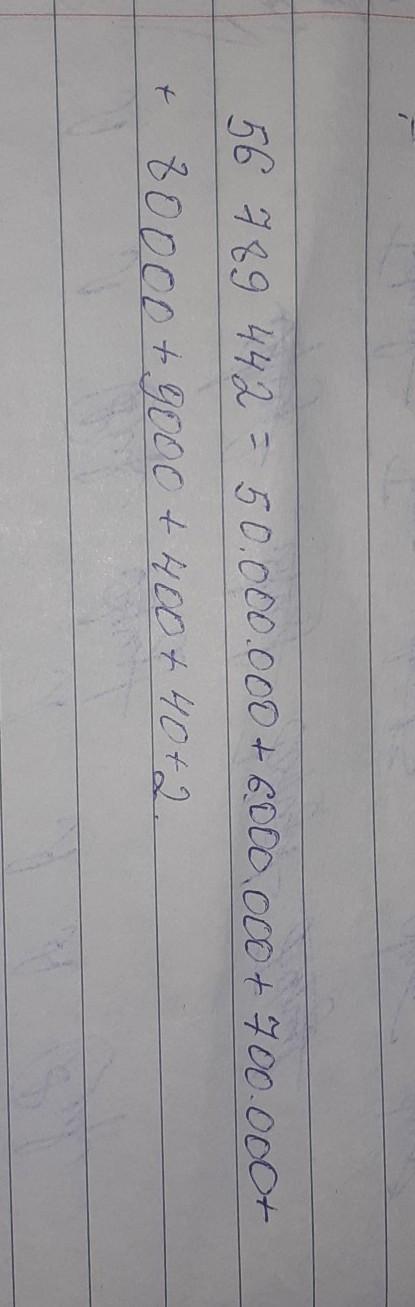 56 789 442 = 50.000.000 + 6.000.000 + 700.000 +
+ 80000 + 9000 + 400 + 40 + 2.